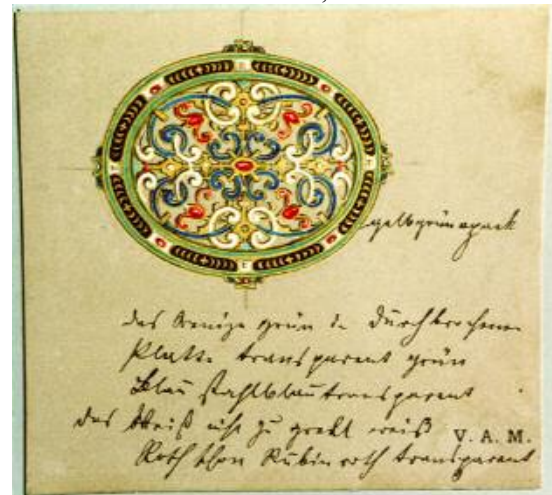 gelbgrün opack
das Wenige grün in durchbrochener
Platte transparent grün
Blau Stahlblau transparent
das Weiß nicht zu grell weiß
V. A. M.
Roth schön Rubinroth transparent